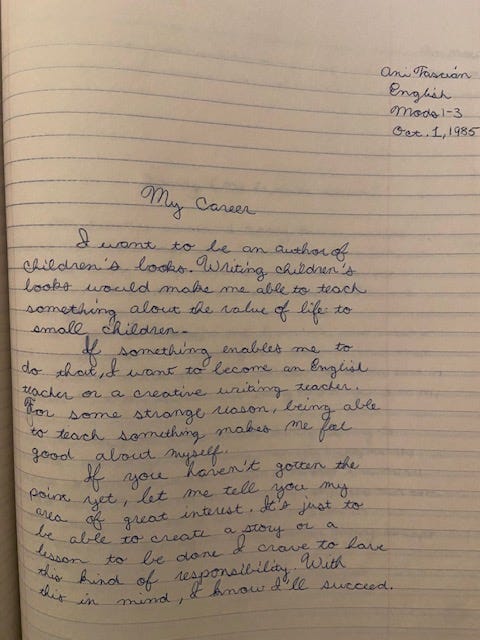 Ani Tascian
English
Mods 1-3
Oct. 1, 1985
My Career
I want to be an author of
children's books. Writing children's
books would make me able to teach
something about the value of life to
small children.
If something enables me to
do that, I want to become an English
teacher or a creative writing teacher.
For some strange reason, being able
to teach something makes me feel
good about myself.
If you haven't gotten the
point yet, let me tell you my
area of great interest. It's just to
be able to create a story or a
lesson to be done I crave to have
this kind of responsibility. With
this in mind, I know I'll succeed.